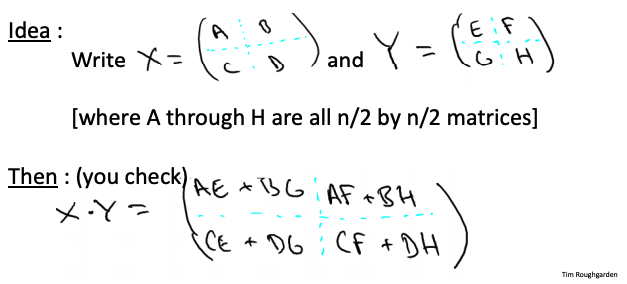 Idea :
Write X = ( A B
C D ) and Y = ( E F
G H )
[where A through H are all n/2 by n/2 matrices]
Then : (you check)
X · Y = ( AE + BG AF + BH
CE + DG CF + DH )
Tim Roughgarden